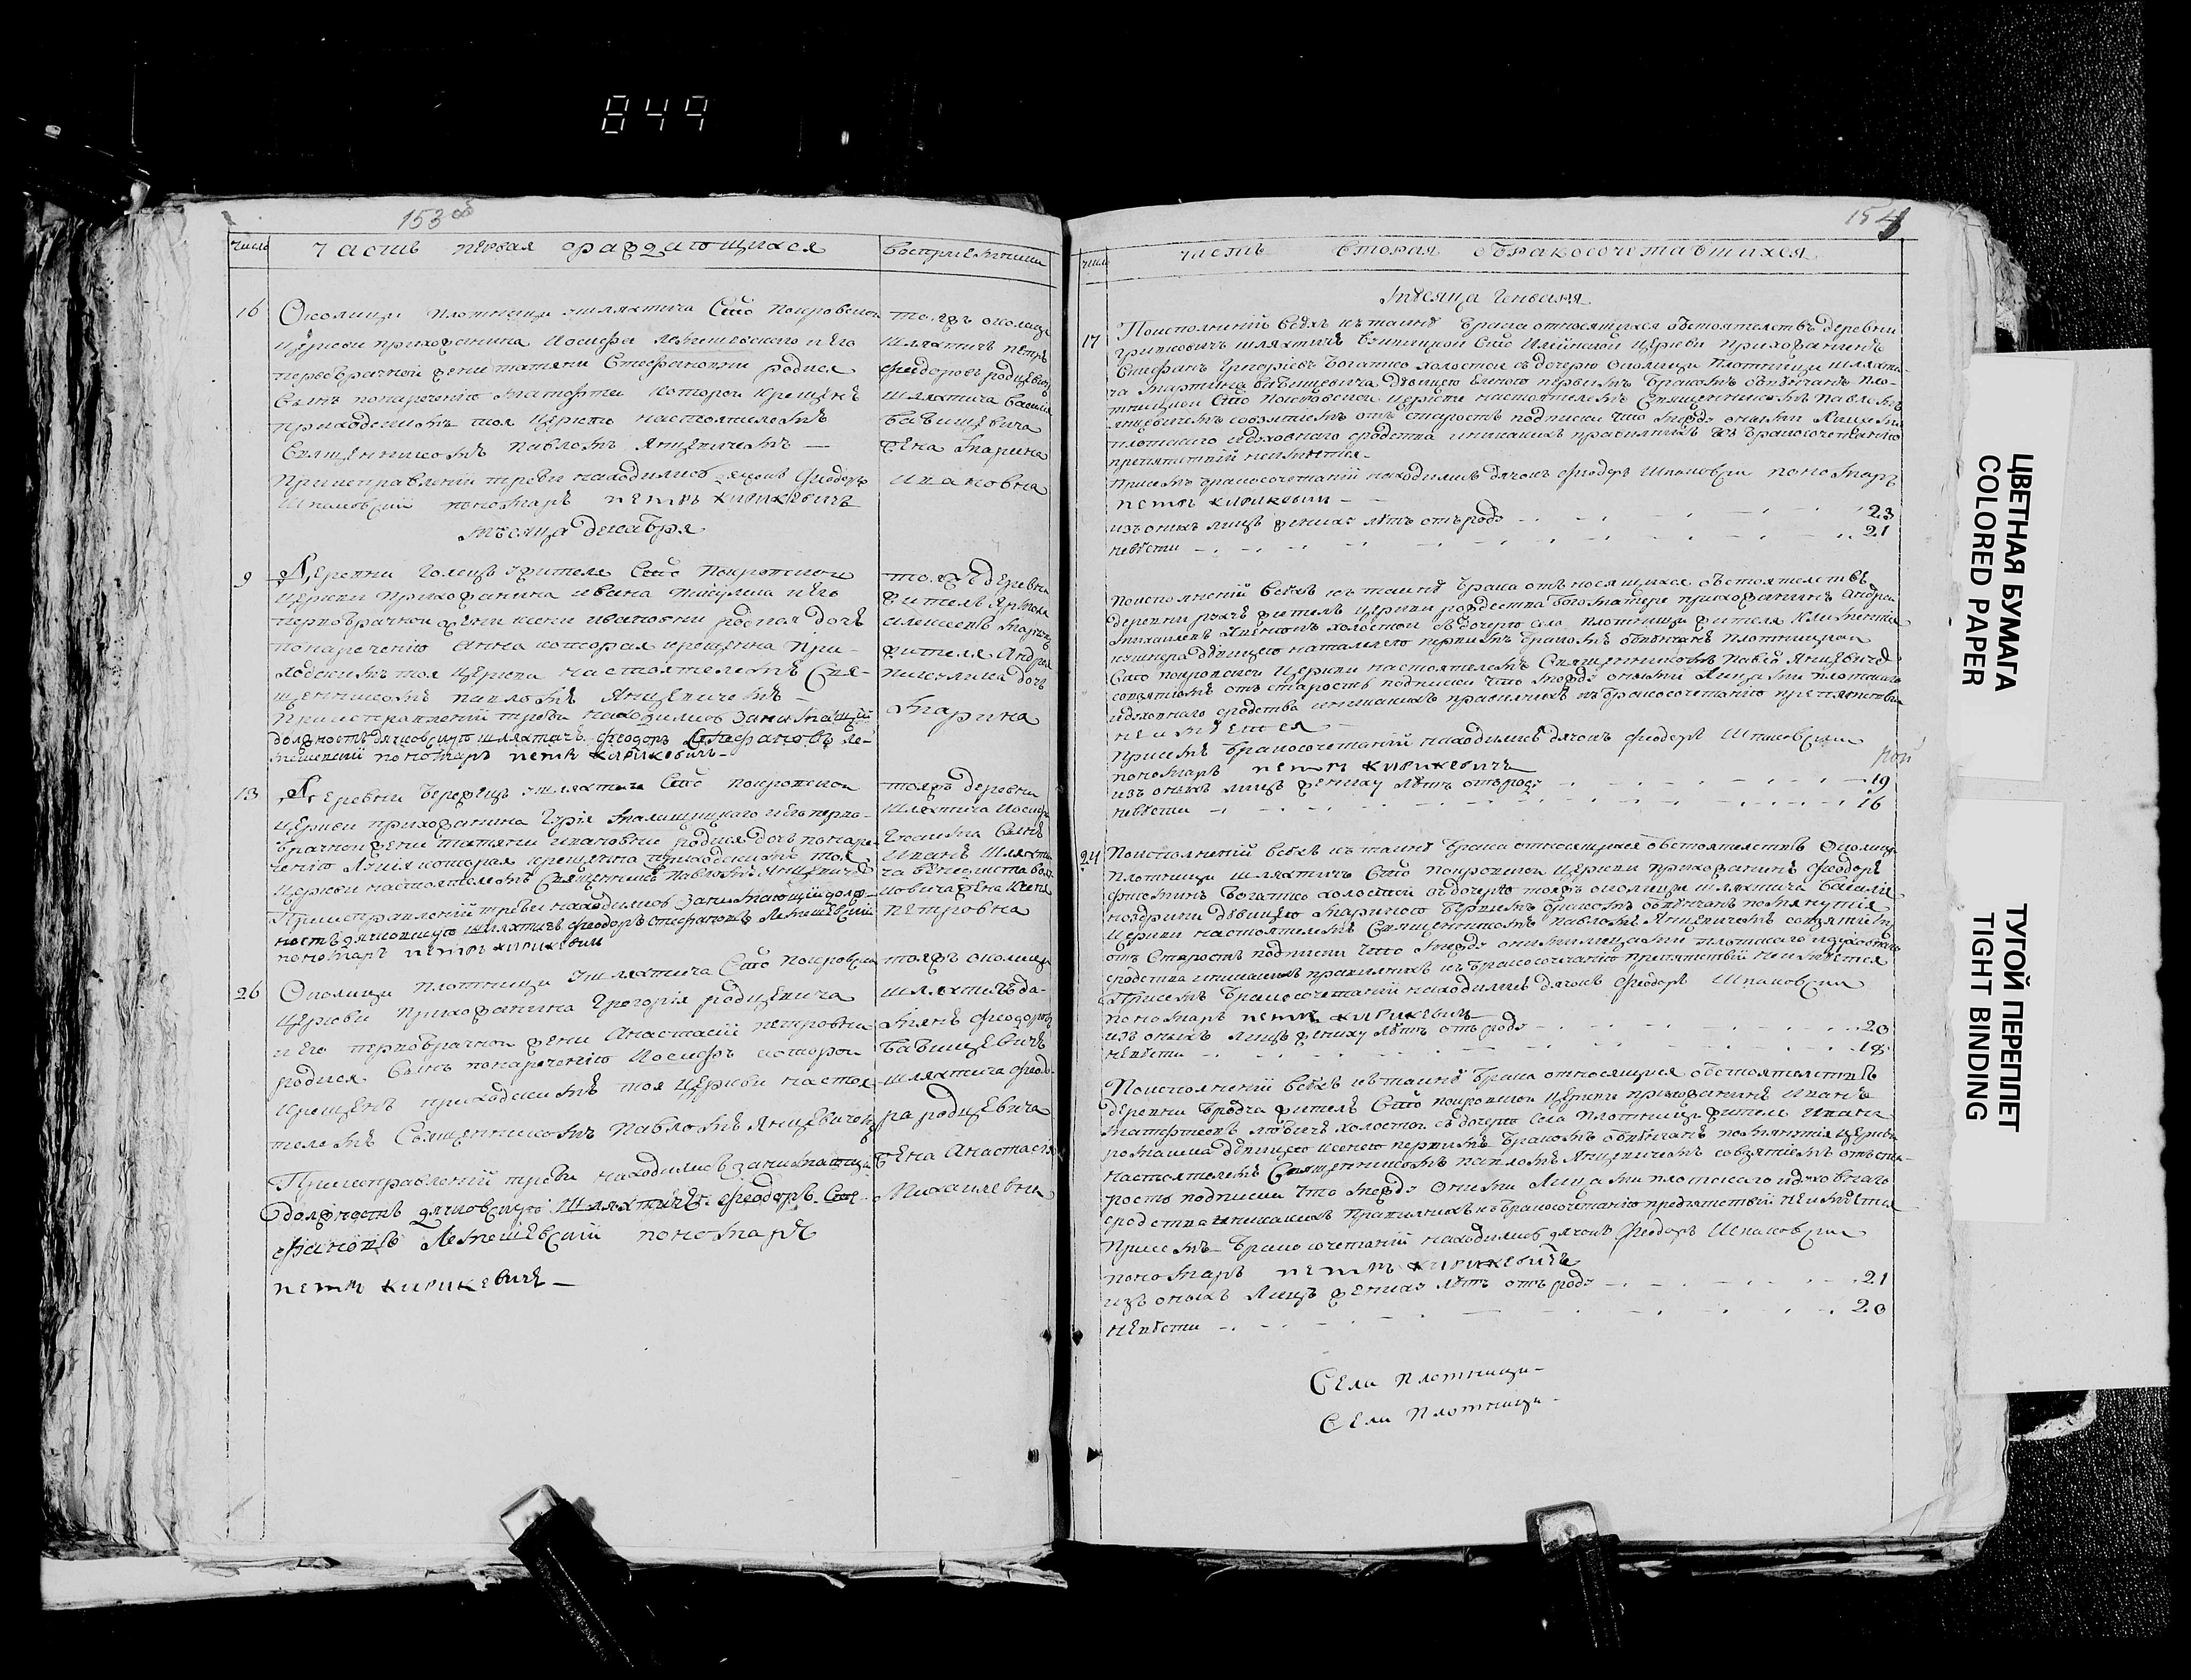 849
153 об
число часть первая о раждающихся восприемники
16 Околицы Плотницы шляхтича Свто Покровской
церкви прихожанина Иосифа Лемешевского и его
первобрачной жены татяни Стефановни родися
сынъ понаречению которой крещенъ
приходскимъ тоя церкви настоятелемъ
Священникомъ Павломъ Янцевичемъ —
При исправлении требы находились дячокъ Феодоръ
Шпаковский пономаръ петръ кирикевичъ
тояжъ околицы
шляхтичъ петръ
феодоровъ родцевичъ
шляхтича василия
бабицевича
жена марина
ивановна
месяца декабря
9 Деревни жителя Свто Покровской
церкви прихожанина ивана и его
первобрачной жени ивановни родися дочь
понаречению анна которая крещена при-
ходскимъ тоя церкви настоятелемъ Свя-
щенникомъ павломъ Янцевичемъ —
При исправлении требы находились занимающий
должность дячковскую шляхтичъ феодоръ Стефановъ Ле-
мешевский пономаръ петръ кирикевичъ —
тояжъ деревни
житель
алексеевъ
жителя андрея
дочь
марина
13 Деревни Бережцъ шляхтича Свто покровской
церкви прихожанина и его перво-
брачной жени татяни ивановни родися дочь понаре-
чению которая крещена приходскимъ тоя
церкви настоятелемъ Священникомъ Павломъ Янцевичемъ
При исправлении требы находились занимающий долж-
ность дячковскую шляхтичъ феодоръ стефановъ Лемешевский
пономаръ петръ кирикевичъ
тояжъ деревни
шляхтича
сынъ
иванъ шляхти
ча
жена
петровна
26 Околицы Плотницы шляхтича Свто покровской
церкви прихожанина Григория родцевича
и его первобрачной жени Анастасии петровни
родися сынъ понаречению Иосифъ которой
крещенъ приходскимъ тоя церкви настоя-
телемъ Священникомъ Павломъ Янцевичемъ
При исправлении требы находились занимающий
должность дячковскую шляхтичъ феодоръ Сте-
фановъ Лемешевский пономаръ
петръ кирикевичъ —
тояжъ околицы
шляхтичъ да-
миянъ феодоровъ
бабицевичъ
шляхтича феодо-
ра родцевича
жена анастасия
Михаилевна
154
число часть вторая о бракосочетавшихся
месяца генваря
17 Поисполнении всехъ къ таинству брака относящихся обстоятелствъ деревни
шляхтичъ церкви прихожанинъ
Стефанъ Григориевъ Богатко холостой съ дочерю околицы Плотницы шляхти-
ча Мартина бабицевича девицею Еленою первимъ бракомъ обвенчанъ Пло-
тницкой Свто Покровской церкви настоятелемъ Священникомъ Павломъ
янцевичемъ со взятиемъ отъ старостъ подписки что между оными лицами
плотского и духовнаго сродства и никакихъ правилнихъ къ бракосочетанию
препятствий неимеется —
При семъ бракосочетании находились дячокъ феодоръ Шпаковский пономаръ
петръ кирикевичъ — —
изъ онихъ лицъ жениху летъ отъ роду 23
невести 21
Поисполнении всехъ къ таинству брака относящихся обстоятелствъ
деревни житель церкви рождества богоматере прихожанинъ андрей
михаилевъ холостой съ дочерю села плотницы жителя
девицею наталиею первимъ бракомъ обвенчанъ Плотницкой
Свто покровской церкви настоятелемъ Священникомъ Павломъ Янцевичемъ
со взятиемъ отъ старостъ подписки что между оними лицами плотского
и духовнаго сродства и никакихъ правилнихъ къ бракосочетанию препятствий
неимеется —
При семъ бракосочетании находились дячокъ феодоръ Шпаковский
пономаръ петръ кирикевичъ
изъ онихъ лицъ жениху летъ отъ роду 19
невести 16
24 Поисполнении всехъ къ таинству брака относящихся обстоятелствъ Околицы
Плотницы шляхтичъ Свто покровской церкви прихожанинъ феодоръ
Богатко холостой съ дочерю тояжъ околицы шляхтича Василия
девицею Мариною первимъ бракомъ обвенчанъ помянутия
церкви настоятелемъ Священникомъ Павломъ Янцевичемъ со взятиемъ
отъ Старостъ подписки что между оними лицами плотского и духовнаго
сродства и никакихъ правилнихъ къ бракосочетанию препятствий неимеется
При семъ бракосочетании находились дячокъ феодоръ Шпаковский
пономаръ петръ кирикевичъ
изъ онихъ лицъ жениху летъ отъ роду 20
невести 18
Поисполнении всехъ къ таинству брака относящихся обстоятелствъ
деревни Бродча житель Свто покровской церкви прихожанинъ Иванъ
холостой съ дочерю села Плотницы жителя Ивана
девицею первимъ бракомъ обвенчанъ помянутия церкви
настоятелемъ Священникомъ павломъ Янцевичемъ со взятиемъ отъ ста-
ростъ подписки что между оними лицами плотского и духовнаго
сродства и никакихъ правилнихъ къ бракосочетанию препятствий неимеется
При семъ бракосочетании находились дячокъ феодоръ Шпаковский
пономаръ петръ кирикевичъ
изъ онихъ лицъ жениху летъ отъ роду 21
невести 20
Села Плотници —
Села Плотници —
ЦВЕТНАЯ БУМАГА
COLORED PAPER
ТУГОЙ ПЕРЕПЛЕТ
TIGHT BINDING